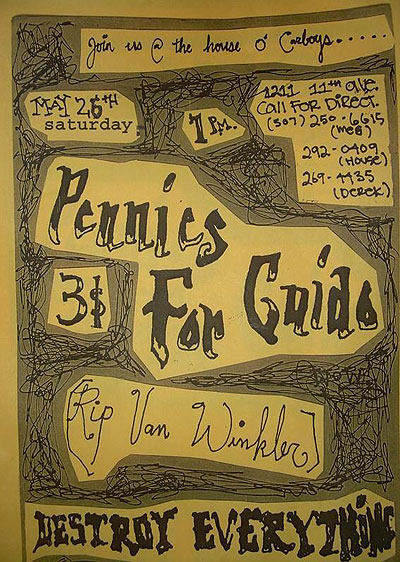 Join us @ the house o' Cazboys.....
MAY 26TH
saturday
7 P.M.
1211 11TH ave.
Call FOR DIRECT.
(507) 250-6615
(MEG)
292-0409
(House)
269-4435
(DEREK)
Pennies
For Guido
3$
[Rip Van Winkler]
DESTROY EVERYTHING